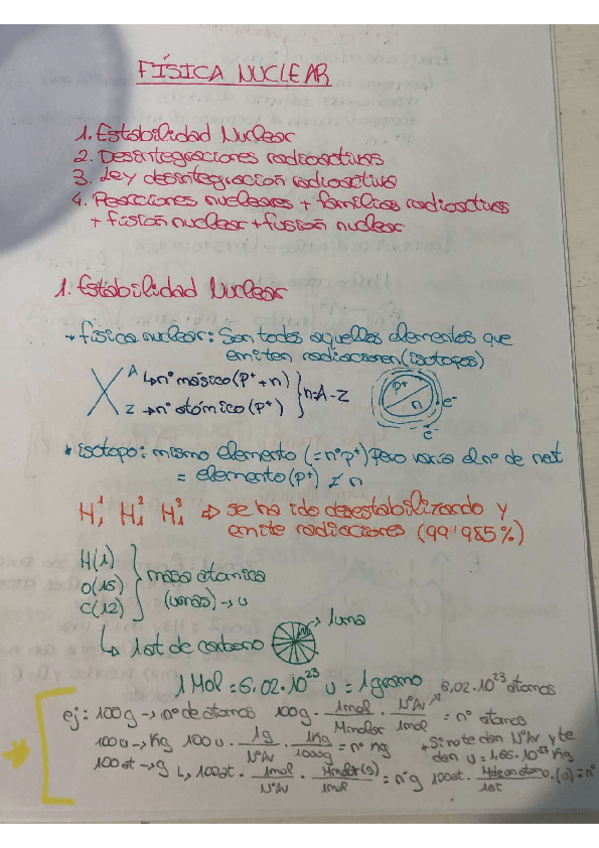 FÍSICA NUCLEAR
1. Estabilidad Nuclear
2. Desintegraciones radioactivas
3. Ley desintegración radioactiva
4. Reacciones nucleares + familias radioactivas
+ fisión nuclear + fusión nuclear
1. Estabilidad Nuclear
+ física nuclear: Son todos aquellos elementos que
emiten radiaciones (isotopos)
X A ↳ nº másico (p⁺ + n) } n = A - Z
Z → nº atómico (p⁺)
p⁺ n e⁻ e⁻
* isotopo: mismo elemento (= nº p⁺) pero varía el nº de neut
= elemento (p⁺) ≠ n
H₁¹ H₁² H₁³ ⇒ se ha ido desestabilizando y
emite radiaciones (99'985%)
H(1)
O(16) } masa atomica
C(12) (umas) → u
↳ 1 at de carbono 1uma
1 Mol = 6,02·10²³ u = 1 gramo 6,02·10²³ átomos
ej: 100g → nº de átomos 100g · 1mol / Mmolar · NºAv / 1mol = nº átomos
100u → Kg 100u · 1g / NºAv · 1Kg / 1000g = nº Kg + Si no te dan NºAv y te
dan u = 1,66·10⁻²⁷ Kg
100at → g ↳ 100at · 1mol / NºAv · Mmolar (g) / 1mol = nº g 100at · M de un átomo (u) / 1at = nº